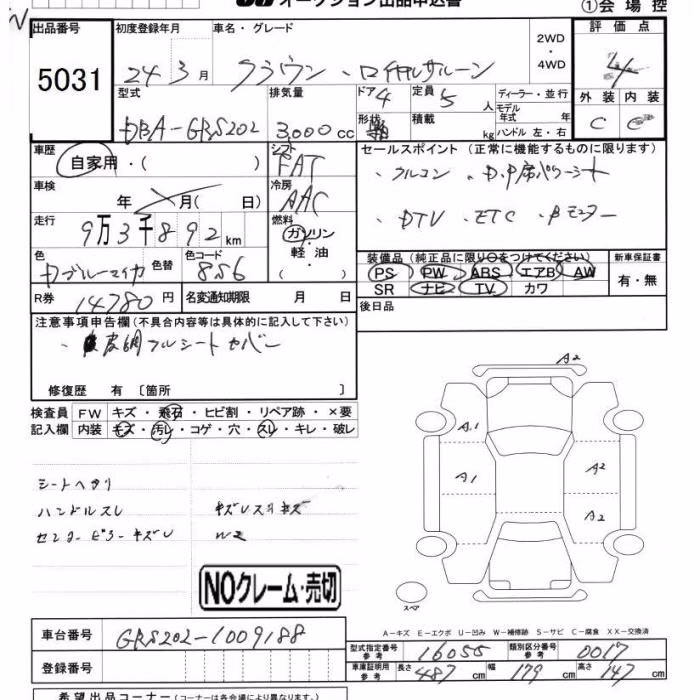 オークション出品申込書
①会場控
出品番号
5031
初度登録年月
24年3月
車名・グレード
クラウン・ロイヤルサルーン
2WD
・
4WD
評価点
4
外装 内装
C C
型式
DBA-GRS202
排気量
3,000cc
ドア 4
定員 5人
ディーラー・並行
形状
積載 kg
モデル年式 年
ハンドル 左・右
車歴
自家用・( )
シフト
FAT
セールスポイント(正常に機能するものに限ります)
・クルコン ・D.P席パワーシート
・DTV ・ETC ・Bモニター
車検
年 月( 日)
冷房
AAC
走行
9万3千892km
燃料
ガソリン
・
軽油
( )
色
色替
色コード
856
装備品(純正品に限り○をつけてください)
PS PW ABS エアB AW
SR ナビ TV カワ
新車保証書
有・無
R券
14780円
名変通知期限 月 日
後日品
注意事項申告欄(不具合内容等は具体的に記入して下さい)
皮調フルシートカバー
修復歴 有 [箇所 ]
検査員
記入欄
FW キズ・飛石・ヒビ割・リペア跡・×要
内装 キズ・汚レ・コゲ・穴・スレ・キレ・破レ
シートヘタリ
ハンドルスレ
センターピラーキズU
W2
A2
A1
A1
A2
A2
スペア
NOクレーム・売切
A-キズ E-エクボ U-凹み W-補修跡 S-サビ C-腐食 XX-交換済
車台番号
GRS202-1009188
型式指定番号
参考
16055
類別区分番号
参考
0017
登録番号
車庫証明用
参考
長さ 487cm
幅 179cm
高さ 147cm
希望出品コーナー(コーナーは各会場により異なります。)